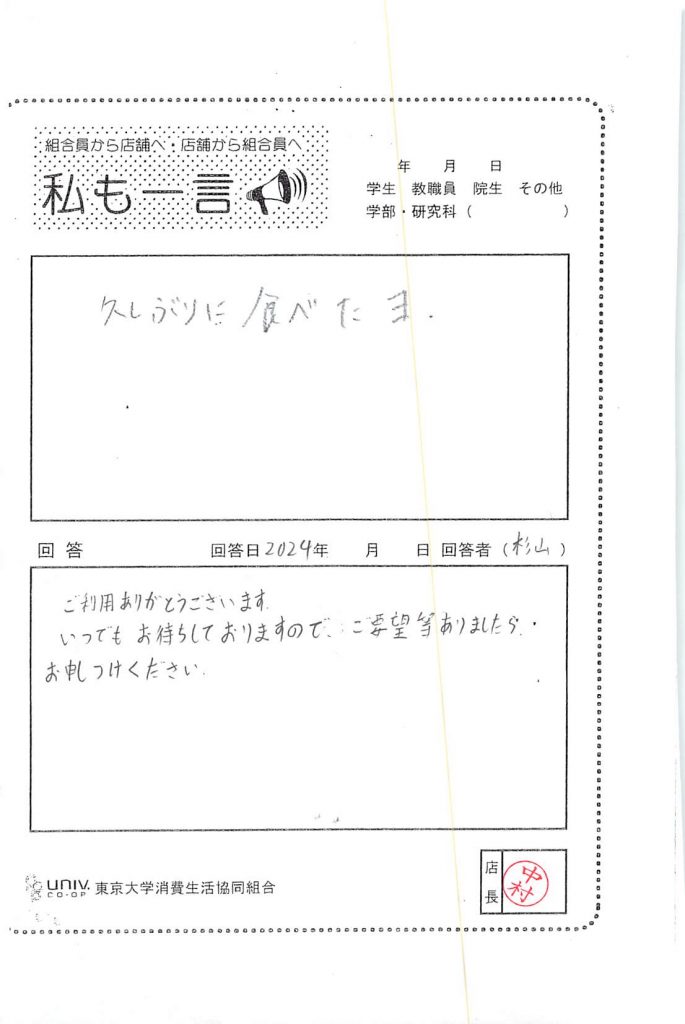 組合員から店舗へ・店舗から組合員へ
私も一言
年 月 日
学生 教職員 院生 その他
学部・研究科( )
久しぶりに食べたヨ.
回答 回答日2024年 月 日 回答者(杉山)
ご利用ありがとうございます.
いつでもお待ちしておりますので、ご要望等ありましたら、
お申しつけください.
UNIV. CO-OP 東京大学消費生活協同組合
店長
中村